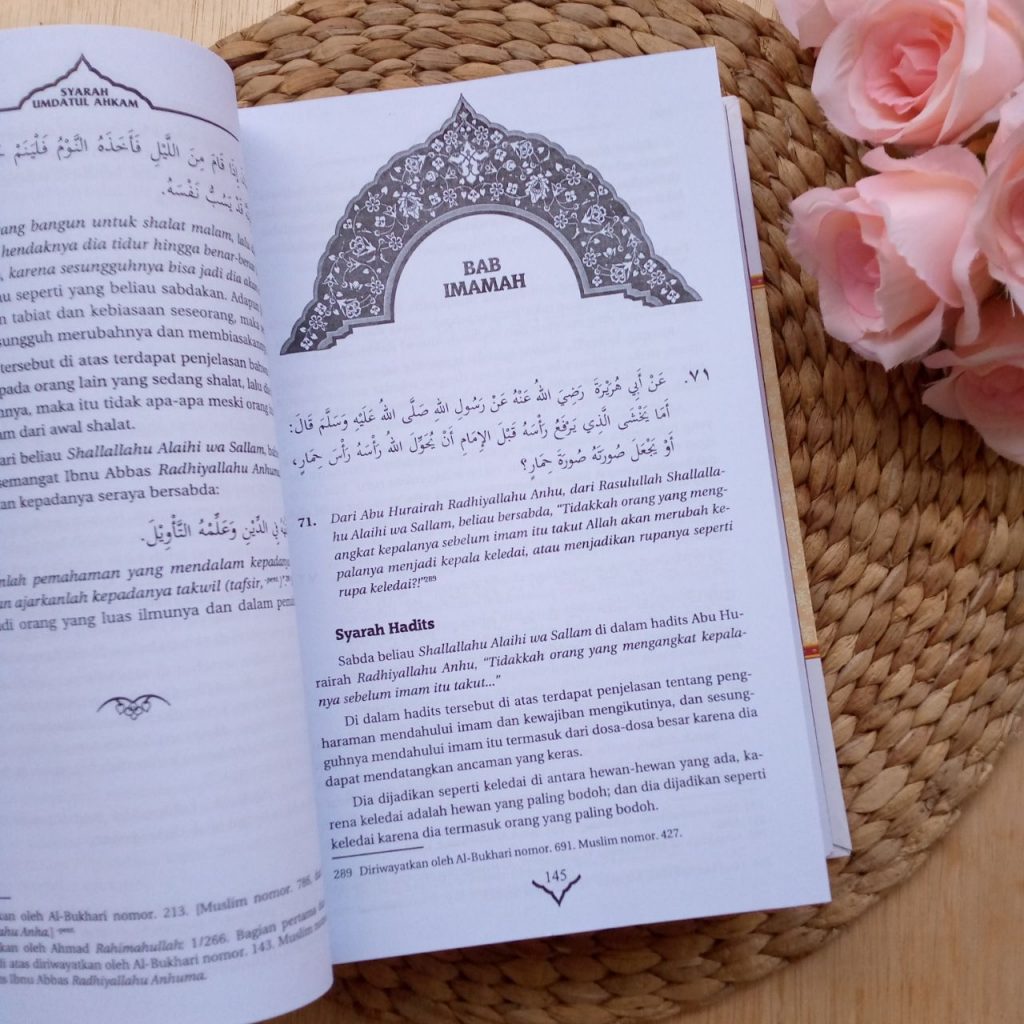 SYARAH
UMDATUL AHKAM
إِذَا قَامَ مِنَ اللَّيْلِ فَأَخَذَهُ النَّوْمُ فَلْيَنَمْ
قَدْ يَسُبُّ نَفْسَهُ.
ang bangun untuk shalat malam, lalu
hendaknya dia tidur hingga benar-benar
, karena sesungguhnya bisa jadi dia akan
u seperti yang beliau sabdakan. Adapun
n tabiat dan kebiasaan seseorang, maka
sungguh merubahnya dan membiasakannya
tersebut di atas terdapat penjelasan bahwa
pada orang lain yang sedang shalat, lalu
nnya, maka itu tidak apa-apa meski orang
am dari awal shalat.
ari beliau Shallallahu Alaihi wa Sallam,
semangat Ibnu Abbas Radhiyallahu Anhuma,
an kepadanya seraya bersabda:
فِي الدِّيْنِ وَعَلِّمْهُ التَّأْوِيْلَ.
nlah pemahaman yang mendalam kepadanya
an ajarkanlah kepadanya takwil (tafsir, -penj.)"
di orang yang luas ilmunya dan dalam
kan oleh Al-Bukhari nomor. 213. [Muslim nomor. 786,
ahu Anha.] -penj.
kan oleh Ahmad Rahimahullah: 1/266. Bagian pertama
di atas diriwayatkan oleh Al-Bukhari nomor. 143. Muslim
s Ibnu Abbas Radhiyallahu Anhuma.
BAB
IMAMAH
٧١. عَنْ أَبِي هُرَيْرَةَ رَضِيَ اللهُ عَنْهُ عَنْ رَسُولِ اللهِ صَلَّى اللهُ عَلَيْهِ وَسَلَّمَ قَالَ:
أَمَا يَخْشَى الَّذِي يَرْفَعُ رَأْسَهُ قَبْلَ الإِمَامِ أَنْ يُحَوِّلَ اللهُ رَأْسَهُ رَأْسَ حِمَارٍ،
أَوْ يَجْعَلَ صُورَتَهُ صُورَةَ حِمَارٍ؟
71. Dari Abu Hurairah Radhiyallahu Anhu, dari Rasulullah Shallalla-
hu Alaihi wa Sallam, beliau bersabda, "Tidakkah orang yang meng-
angkat kepalanya sebelum imam itu takut Allah akan merubah ke-
palanya menjadi kepala keledai, atau menjadikan rupanya seperti
rupa keledai?!"289
Syarah Hadits
Sabda beliau Shallallahu Alaihi wa Sallam di dalam hadits Abu Hu-
rairah Radhiyallahu Anhu, "Tidakkah orang yang mengangkat kepala-
nya sebelum imam itu takut..."
Di dalam hadits tersebut di atas terdapat penjelasan tentang peng-
haraman mendahului imam dan kewajiban mengikutinya, dan sesung-
guhnya mendahului imam itu termasuk dari dosa-dosa besar karena dia
dapat mendatangkan ancaman yang keras.
Dia dijadikan seperti keledai di antara hewan-hewan yang ada, ka-
rena keledai adalah hewan yang paling bodoh; dan dia dijadikan seperti
keledai karena dia termasuk orang yang paling bodoh.
289 Diriwayatkan oleh Al-Bukhari nomor. 691. Muslim nomor. 427.
145